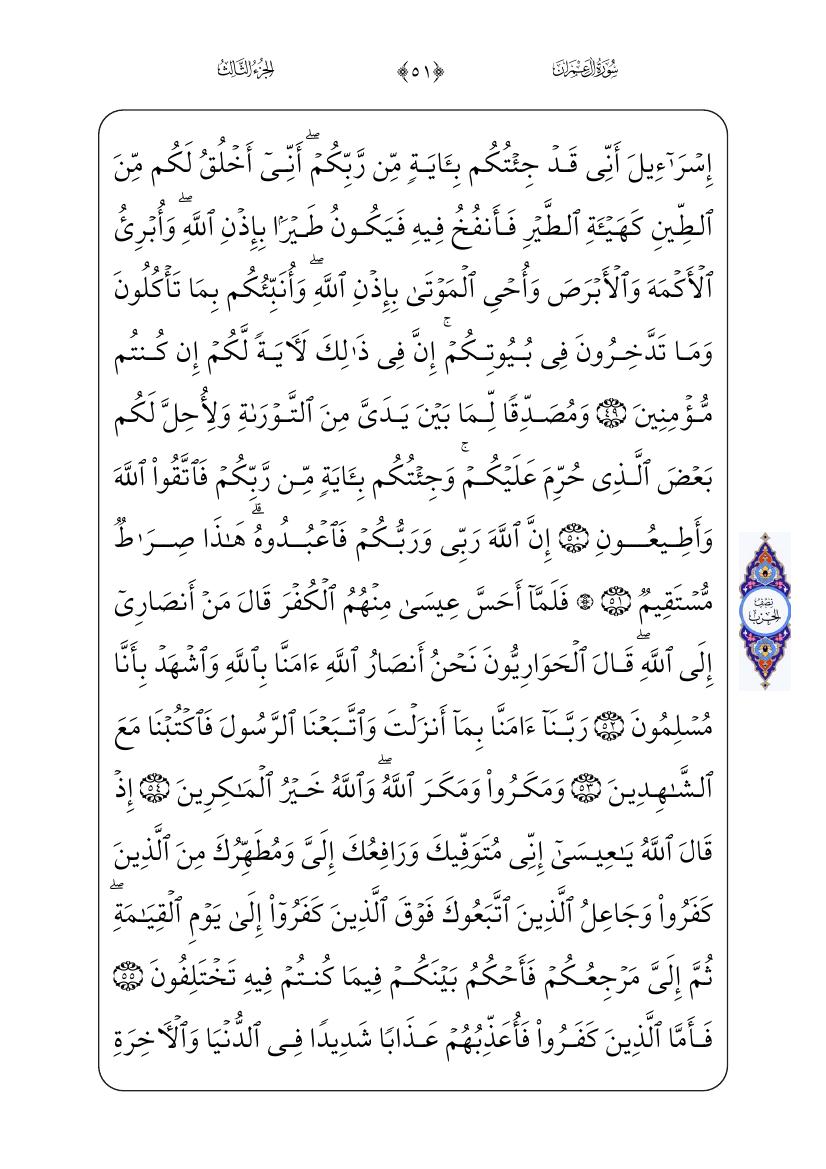 سُورَةُ آلِ عِمۡرَانَ ﴿٥١﴾ الجُزْءُ الثَّالِثُ
إِسۡرَـٰٓءِيلَ أَنِّى قَدۡ جِئۡتُكُم بِـَٔايَةٍ مِّن رَّبِّكُمۡۖ أَنِّىٓ أَخۡلُقُ لَكُم مِّنَ
ٱلطِّينِ كَهَيۡـَٔةِ ٱلطَّيۡرِ فَأَنفُخُ فِيهِ فَيَكُونُ طَيۡرَۢا بِإِذۡنِ ٱللَّهِۖ وَأُبۡرِئُ
ٱلۡأَكۡمَهَ وَٱلۡأَبۡرَصَ وَأُحۡىِ ٱلۡمَوۡتَىٰ بِإِذۡنِ ٱللَّهِۖ وَأُنَبِّئُكُم بِمَا تَأۡكُلُونَ
وَمَا تَدَّخِرُونَ فِى بُيُوتِكُمۡۚ إِنَّ فِى ذَٰلِكَ لَـَٔايَةً لَّكُمۡ إِن كُنتُم
مُّؤۡمِنِينَ ٤٩ وَمُصَدِّقًا لِّمَا بَيۡنَ يَدَىَّ مِنَ ٱلتَّوۡرَىٰةِ وَلِأُحِلَّ لَكُم
بَعۡضَ ٱلَّذِى حُرِّمَ عَلَيۡكُمۡۚ وَجِئۡتُكُم بِـَٔايَةٍ مِّن رَّبِّكُمۡ فَٱتَّقُواْ ٱللَّهَ
وَأَطِيعُونِ ٥٠ إِنَّ ٱللَّهَ رَبِّى وَرَبُّكُمۡ فَٱعۡبُدُوهُۗ هَـٰذَا صِرَٰطٌ
مُّسۡتَقِيمٌ ٥١ ۞ فَلَمَّآ أَحَسَّ عِيسَىٰ مِنۡهُمُ ٱلۡكُفۡرَ قَالَ مَنۡ أَنصَارِىٓ
نِصْفُ الحِزْبِ
إِلَى ٱللَّهِۖ قَالَ ٱلۡحَوَارِيُّونَ نَحۡنُ أَنصَارُ ٱللَّهِ ءَامَنَّا بِٱللَّهِ وَٱشۡهَدۡ بِأَنَّا
مُسۡلِمُونَ ٥٢ رَبَّنَآ ءَامَنَّا بِمَآ أَنزَلۡتَ وَٱتَّبَعۡنَا ٱلرَّسُولَ فَٱكۡتُبۡنَا مَعَ
ٱلشَّـٰهِدِينَ ٥٣ وَمَكَرُواْ وَمَكَرَ ٱللَّهُۖ وَٱللَّهُ خَيۡرُ ٱلۡمَـٰكِرِينَ ٥٤ إِذۡ
قَالَ ٱللَّهُ يَـٰعِيسَىٰٓ إِنِّى مُتَوَفِّيكَ وَرَافِعُكَ إِلَىَّ وَمُطَهِّرُكَ مِنَ ٱلَّذِينَ
كَفَرُواْ وَجَاعِلُ ٱلَّذِينَ ٱتَّبَعُوكَ فَوۡقَ ٱلَّذِينَ كَفَرُوٓاْ إِلَىٰ يَوۡمِ ٱلۡقِيَـٰمَةِۖ
ثُمَّ إِلَىَّ مَرۡجِعُكُمۡ فَأَحۡكُمُ بَيۡنَكُمۡ فِيمَا كُنتُمۡ فِيهِ تَخۡتَلِفُونَ ٥٥
فَأَمَّا ٱلَّذِينَ كَفَرُواْ فَأُعَذِّبُهُمۡ عَذَابًا شَدِيدًا فِى ٱلدُّنۡيَا وَٱلۡـَٔاخِرَةِ